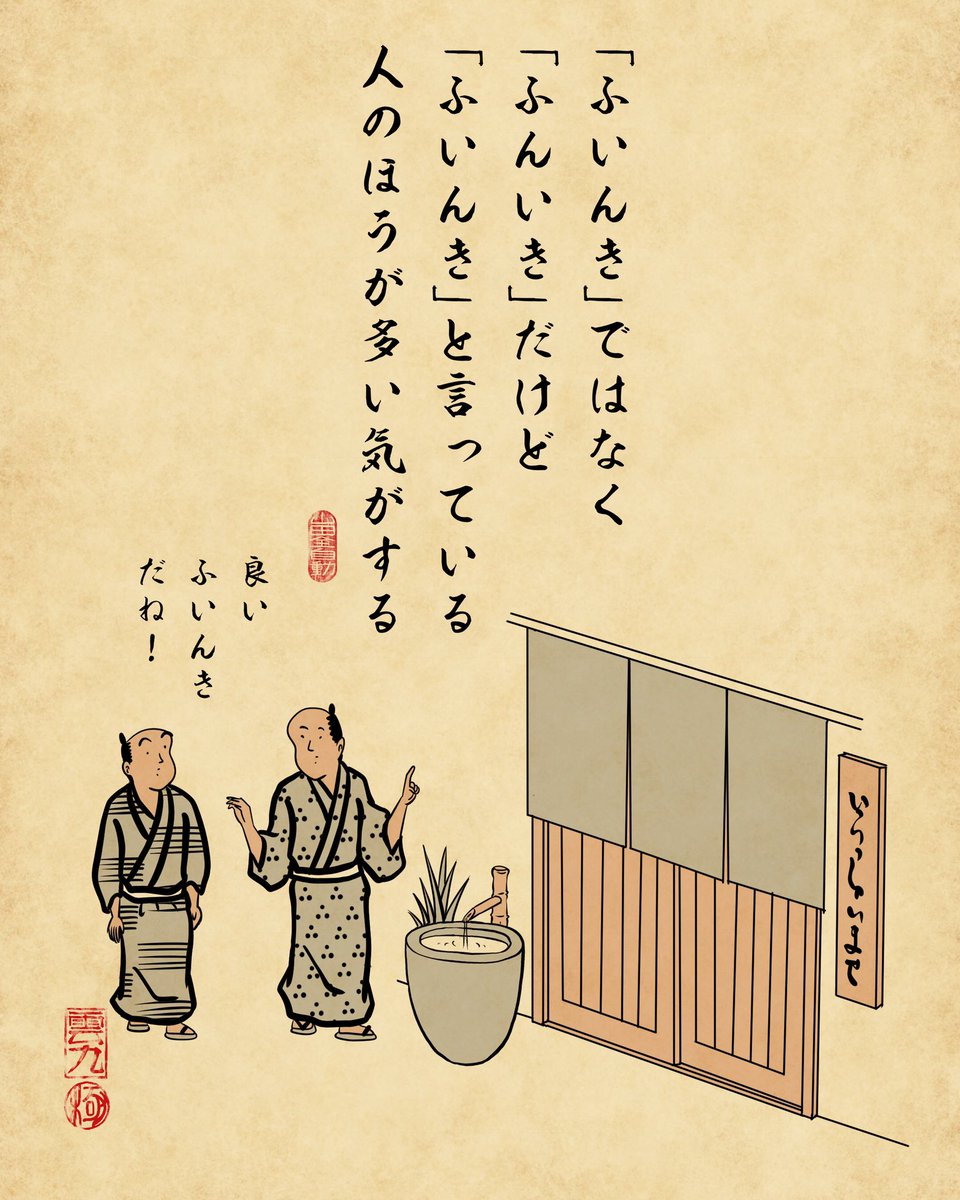 「ふいんき」ではなく
「ふんいき」だけど
「ふいんき」と言っている
人のほうが多い気がする
良い
ふいんき
だね！
いらっしゃいませ